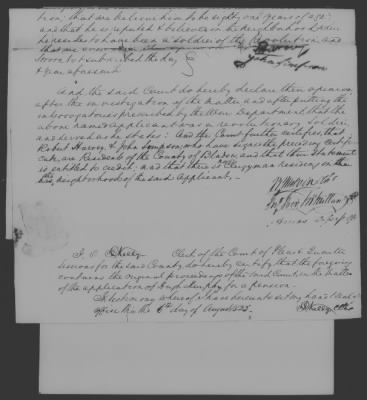 tion; that we believe him to be eighty one years of age;
and that he is reputed & believed in the neighborhood where
he resides to have been a soldier of the Revolution, and
that we
Sworn to & subscribed the day
& year aforesaid
John Simpson
And the said Court do hereby declare their opinion,
after the investigation of the matter, and after putting the
interrogatories prescribed by the War Department, that the
above named applicant was a revolutionary soldier
and served as he states: And the Court further certifies, that
Robert Harvey & John Simpson, who have signed the preceding certifi-
cate, are Residents of the County of Bladen, and that their statement
is entitled to credit; and that there is no Clergyman residing in the
neighborhood of the said applicant.
Clerk of the Court of Pleas & Quarter
Sessions for the said County, do hereby certify that the foregoing
contains the original proceedings of the said Court in the matter
of the application of Hugh Murphy for a pension.
In testimony whereof I have hereunto set my hand & seal of
office this the 6th day of August